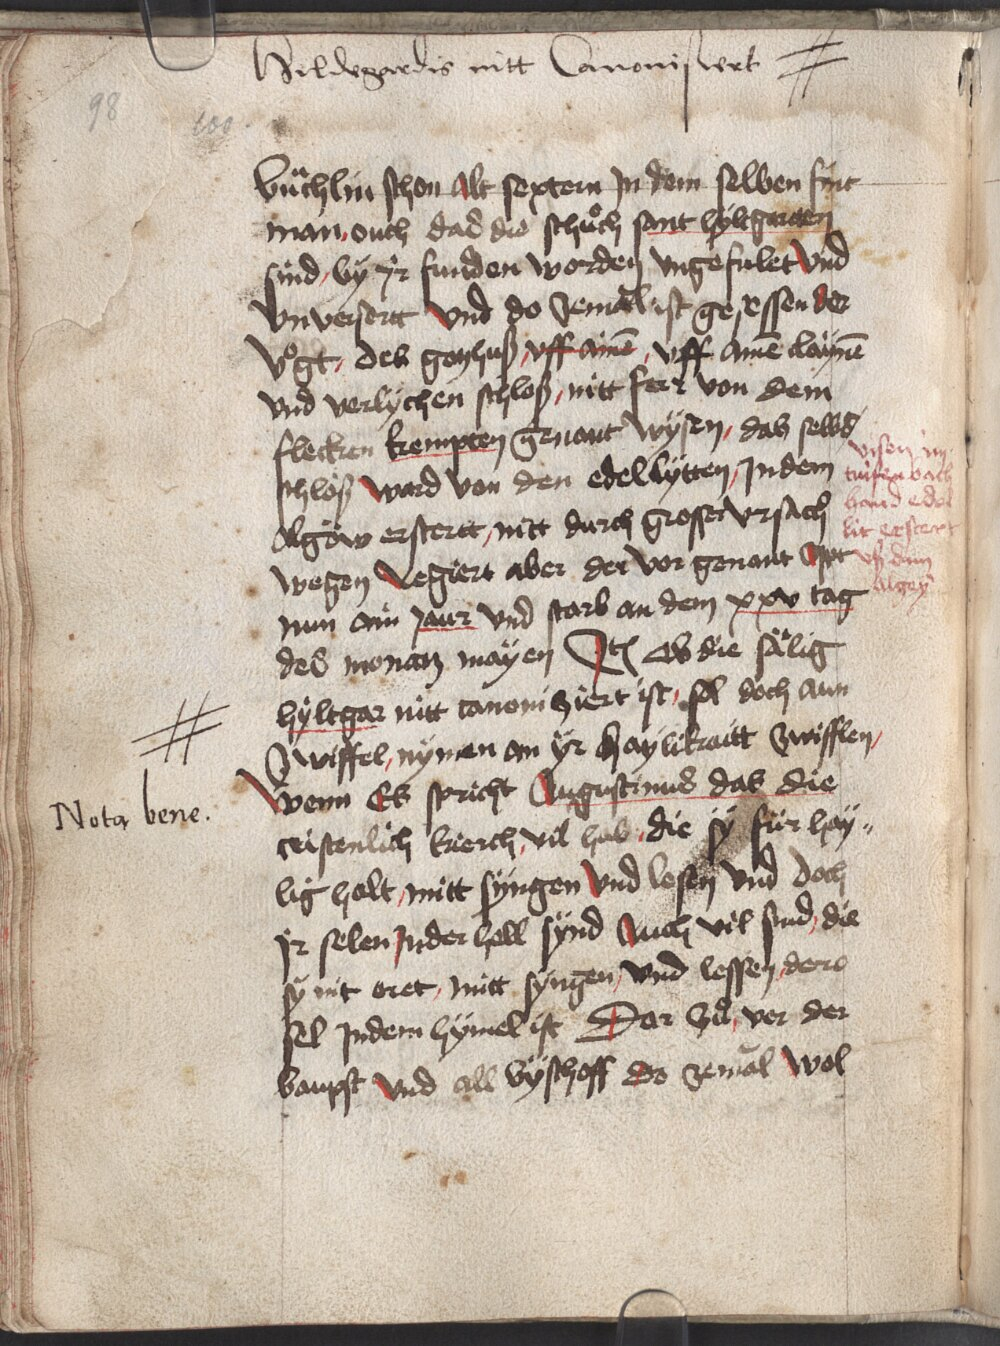 Hildegardis nitt Canonisiert #
98
100.
büchlin schon alt sextern In dem selben fint
man, ouch das die schuͦch sant hyltgarten
sind, by yr funden worden ungefulet und
unversert und do Zemāl ist gesessen der
Vogt, des gotzhuß, uff aimē, uff aimē claynē
und verlychen schloß, nitt ferr von dem
flecken kempten genant wysen, das selbig
schloß ward von den edellytten, In dem
algöw erstertt, nitt durch grosser ursach
wegen Regiert aber der vor genant Apt
nun ain Jaur und starb an dem xxv tag
des monatz mayen Itē Ob die sälig
hyltgar nitt canonisziert ist, sol doch aun
Zwiffel, nymen an yr haylikaitt zwifflen,
wenn Es spricht Augustinus das die
cristenlich kierch, vil hab, die sy für hay„
lig halt, mitt syngen und lesen und doch
ir selen In der hell synd Auch vil sind, die
sy nit eret, mitt syngen, und lessen, dero
sel In dem hymel ist Dar zu, wer der
baupst und all byschoff do zemāl wol
hand edel
lit
uß dem
algöy
#
Nota bene.